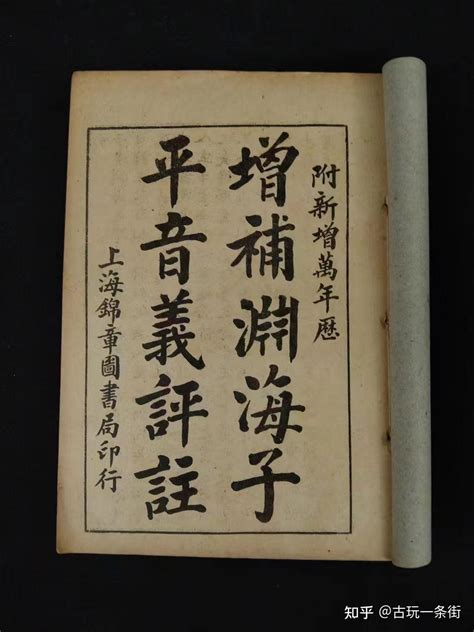 附新增萬年曆
增補淵海子
平音義評註
上海錦章圖書局印行
知乎 @古玩一条街